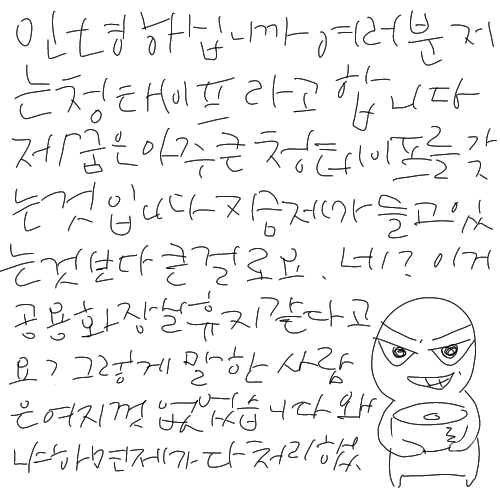 안녕하십니까 여러분 저
는 청테이프라고 합니다
제 꿈은 아주 큰 청테이프를 갖
는것 입니다 지금 제가 들고있
는것보다 큰걸로요. 네? 이거
공용화장실 휴지 같다고
요? 그렇게 말한 사람
은 여지껏 없었습니다 왜
냐하면 제가 다 처리했